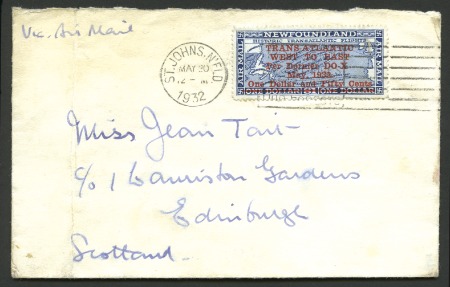 Via Air Mail
ST. JOHN'S. N'F'LD.
MAY 20
12 - M
1932
NEWFOUNDLAND
HISTORIC TRANSATLANTIC FLIGHTS
AIR MAIL
AIR MAIL
TRANS-ATLANTIC
WEST TO EAST
Per Dornier DO-X
May, 1932.
One Dollar and Fifty Cents
ONE DOLLAR $1 ONE DOLLAR
Miss Jean Tait
c/o 1 Lauriston Gardens
Edinburgh
Scotland.